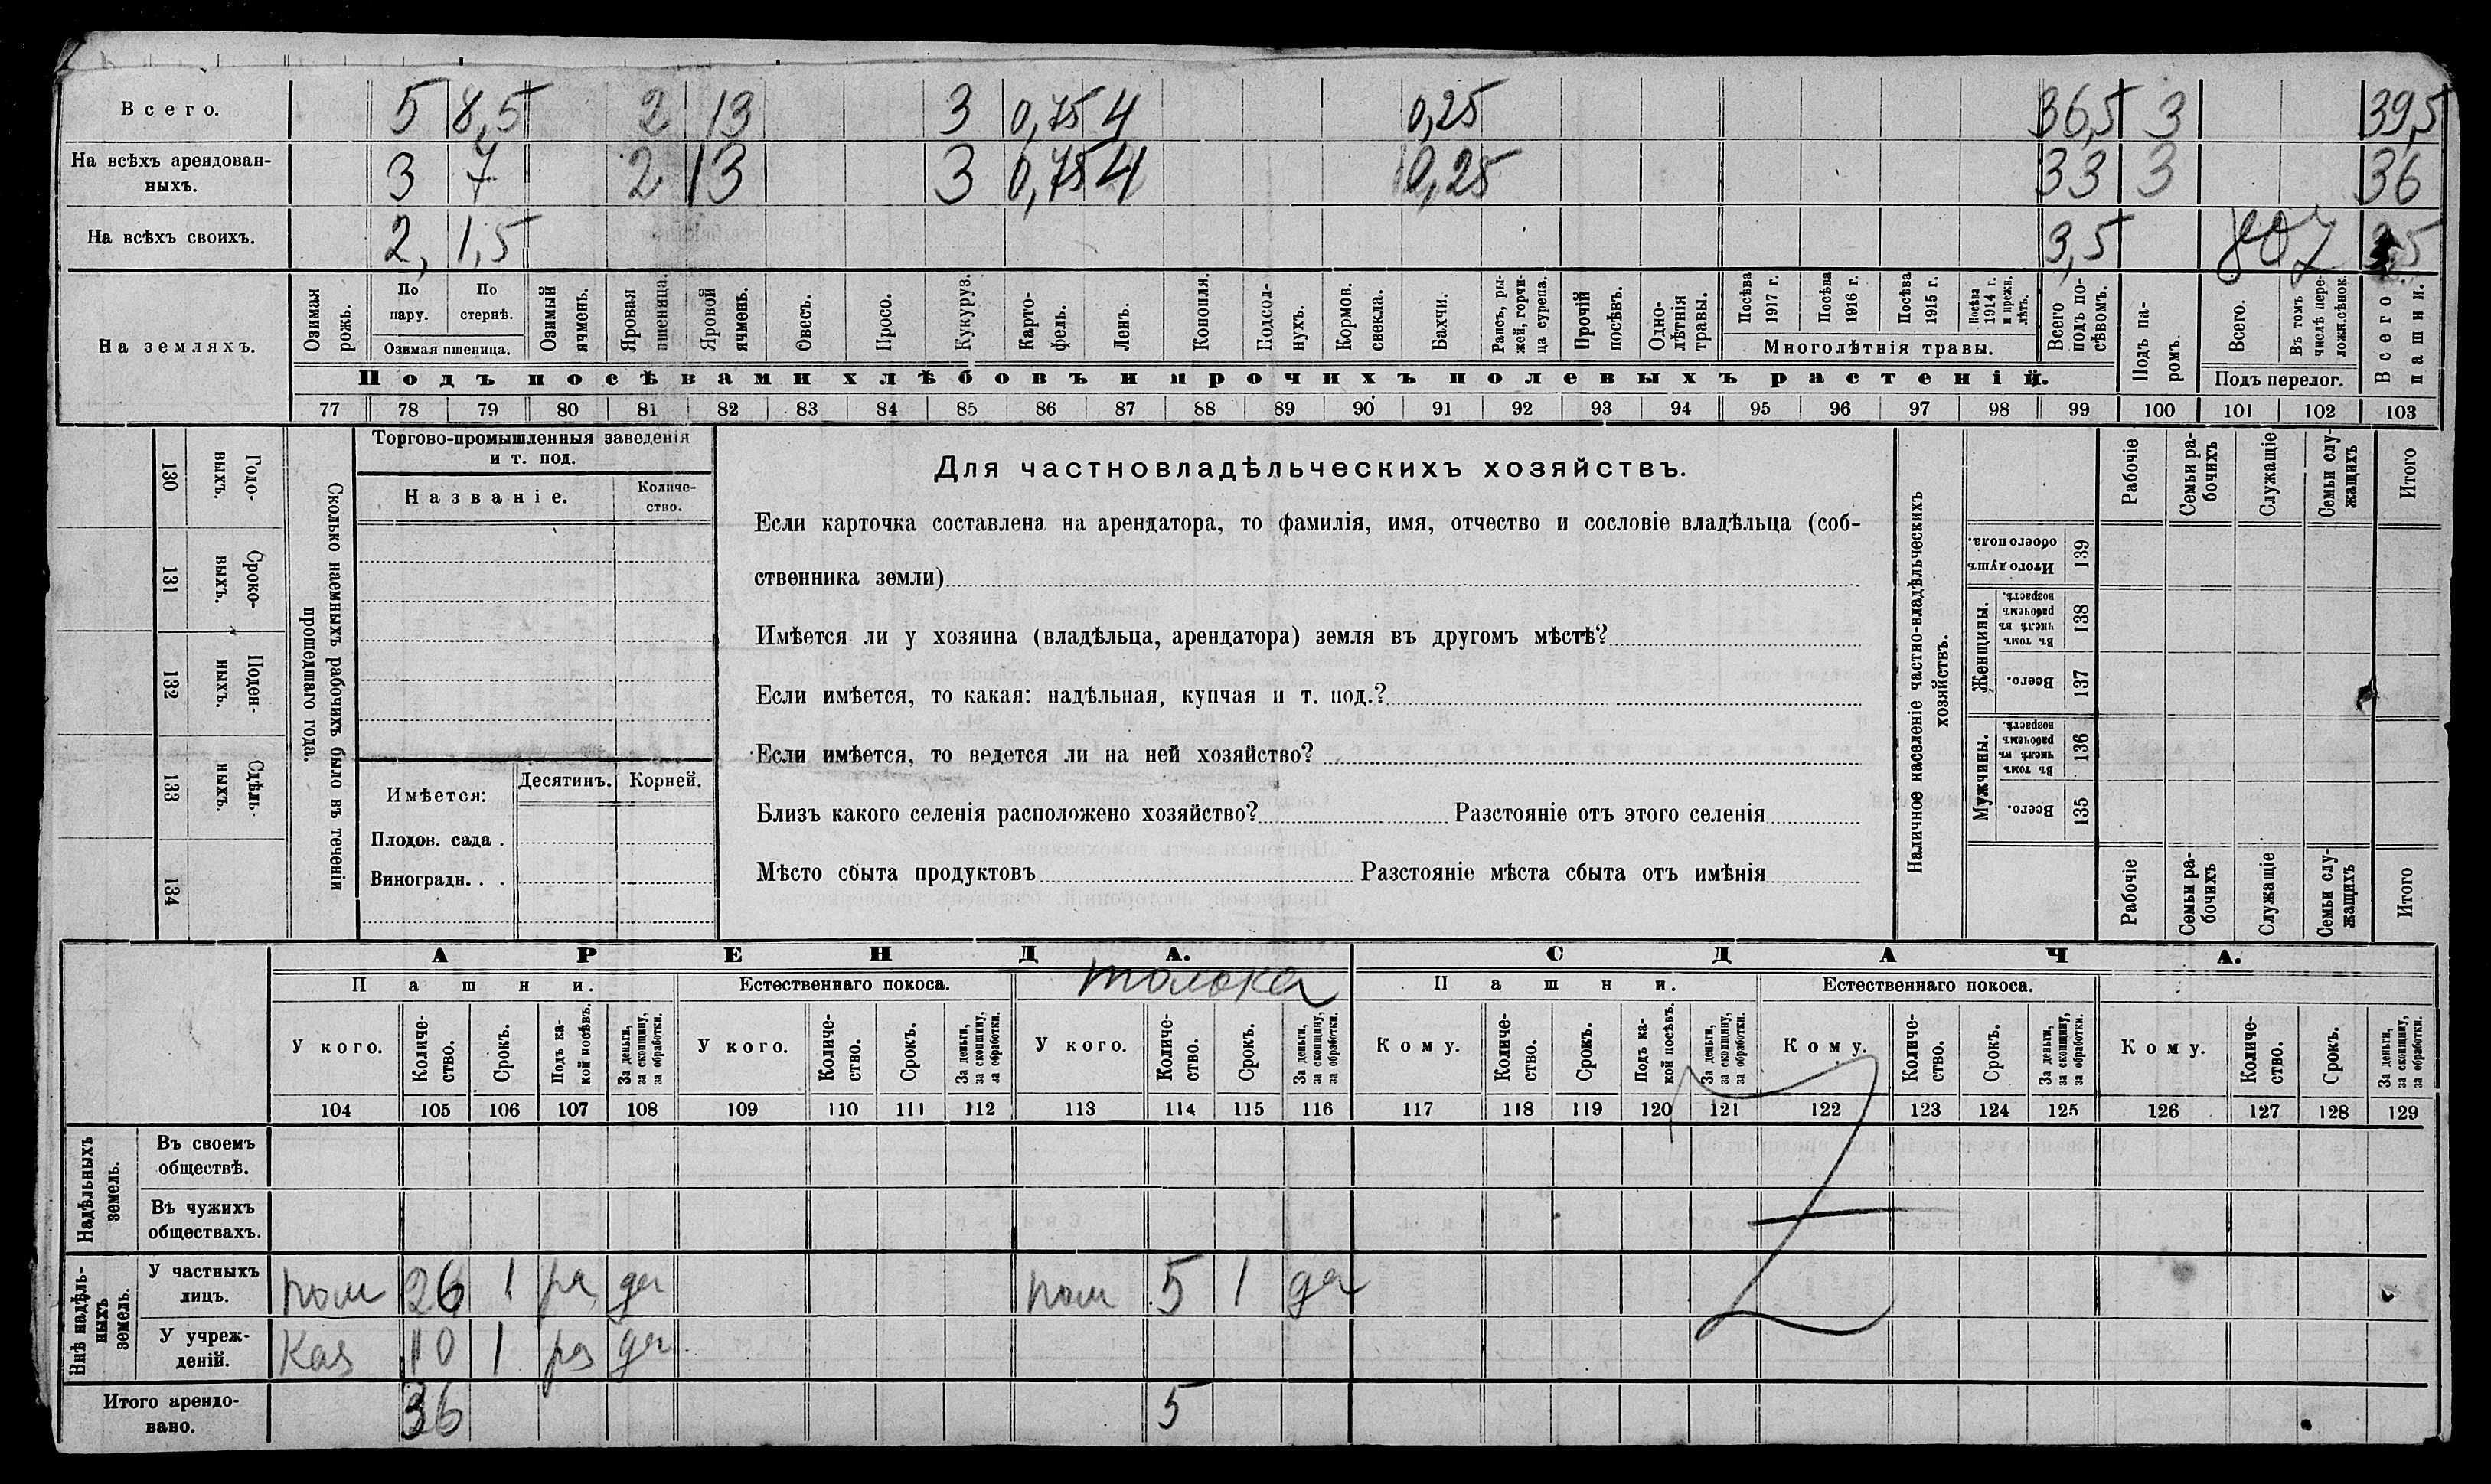 Всего. 5 8,5 2 13 3 0,75 4 0,25 36,5 3 39,5
На всѣхъ арендован-
ныхъ. 3 7 2 13 3 0,75 4 0,25 33 3 36
На всѣхъ своихъ. 2, 1,5 3,5
На земляхъ.
Озимая рожь.
По пару.
По стернѣ.
Озимая пшеница.
Озимый ячмень.
Яровая пшеница.
Яровой ячмень.
Овесъ.
Просо.
Кукуруз.
Карто-
фель.
Ленъ.
Конопля.
Подсол-
нухъ.
Кормов.
свекла.
Бахчи.
Рапсъ, ры-
жей, горчи-
ца сурепа.
Прочій
посѣвъ.
Одно-
лѣтнія
травы.
Посѣва 1917 г.
Посѣва 1916 г.
Посѣва 1915 г.
Посѣва 1914 г. и прежн. лѣтъ.
Многолѣтнія травы.
Всего подъ по-
сѣвомъ.
Подъ посѣвами хлѣбовъ и прочихъ полевыхъ растеній.
Подъ па-
ромъ.
Всего.
Въ томъ числѣ пере-
ложн. сѣнок.
Подъ перелог.
Всего пашни.
77 78 79 80 81 82 83 84 85 86 87 88 89 90 91 92 93 94 95 96 97 98 99 100 101 102 103
Годо-
выхъ.
130
Сроко-
выхъ.
131
Поден-
ныхъ.
132
Сдѣль-
ныхъ.
133
134
Сколько наемныхъ рабочихъ было въ теченіи
прошедшаго года.
Торгово-промышленныя заведенія
и т. под.
Названіе.
Количе-
ство.
Имѣется:
Десятинъ. Корней.
Плодов. сада .
Виноградн. . .
Для частновладѣльческихъ хозяйствъ.
Если карточка составлена на арендатора, то фамилія, имя, отчество и сословіе владѣльца (соб-
ственника земли)
Имѣется ли у хозяина (владѣльца, арендатора) земля въ другомъ мѣстѣ?
Если имѣется, то какая: надѣльная, купчая и т. под.?
Если имѣется, то ведется ли на ней хозяйство?
Близъ какого селенія расположено хозяйство? Разстояніе отъ этого селенія
Мѣсто сбыта продуктовъ Разстояніе мѣста сбыта отъ имѣнія
Наличное населеніе частно-владѣльческихъ
хозяйствъ.
Рабочіе
Семьи ра-
бочихъ
Служащіе
Семьи слу-
жащихъ
Итого
Итого душъ
обоего пола.
139
Женщины.
Въ томъ числѣ въ рабочемъ возрастѣ.
138
Всего.
137
Мужчины.
Въ томъ числѣ въ рабочемъ возрастѣ.
136
Всего.
135
Рабочіе
Семьи ра-
бочихъ
Служащіе
Семьи слу-
жащихъ
Итого
АРЕНДА.
СДАЧА.
Пашни.
Естественнаго покоса.
толока
Пашни.
Естественнаго покоса.
У кого.
Количе-
ство.
Срокъ.
Подъ ка-
кой посѣвъ.
За деньги,
за скопщину,
за обработки.
У кого.
Количе-
ство.
Срокъ.
За деньги,
за скопщину,
за обработки.
У кого.
Количе-
ство.
Срокъ.
За деньги,
за скопщину,
за обработки.
Кому.
Количе-
ство.
Срокъ.
Подъ ка-
кой посѣвъ.
За деньги,
за скопщину,
за обработки.
Кому.
Количе-
ство.
Срокъ.
За деньги,
за скопщину,
за обработки.
Кому.
Количе-
ство.
Срокъ.
За деньги,
за скопщину,
за обработки.
104 105 106 107 108 109 110 111 112 113 114 115 116 117 118 119 120 121 122 123 124 125 126 127 128 129
Надѣльныхъ
земель.
Въ своемъ
обществѣ.
Въ чужихъ
обществахъ.
Внѣ надѣль-
ныхъ
земель.
У частныхъ
лицъ. пом 26 1 ра де пом 5 1 де
У учреж-
деній. Каз 10 1 ра де
Итого арендо-
вано. 36 5